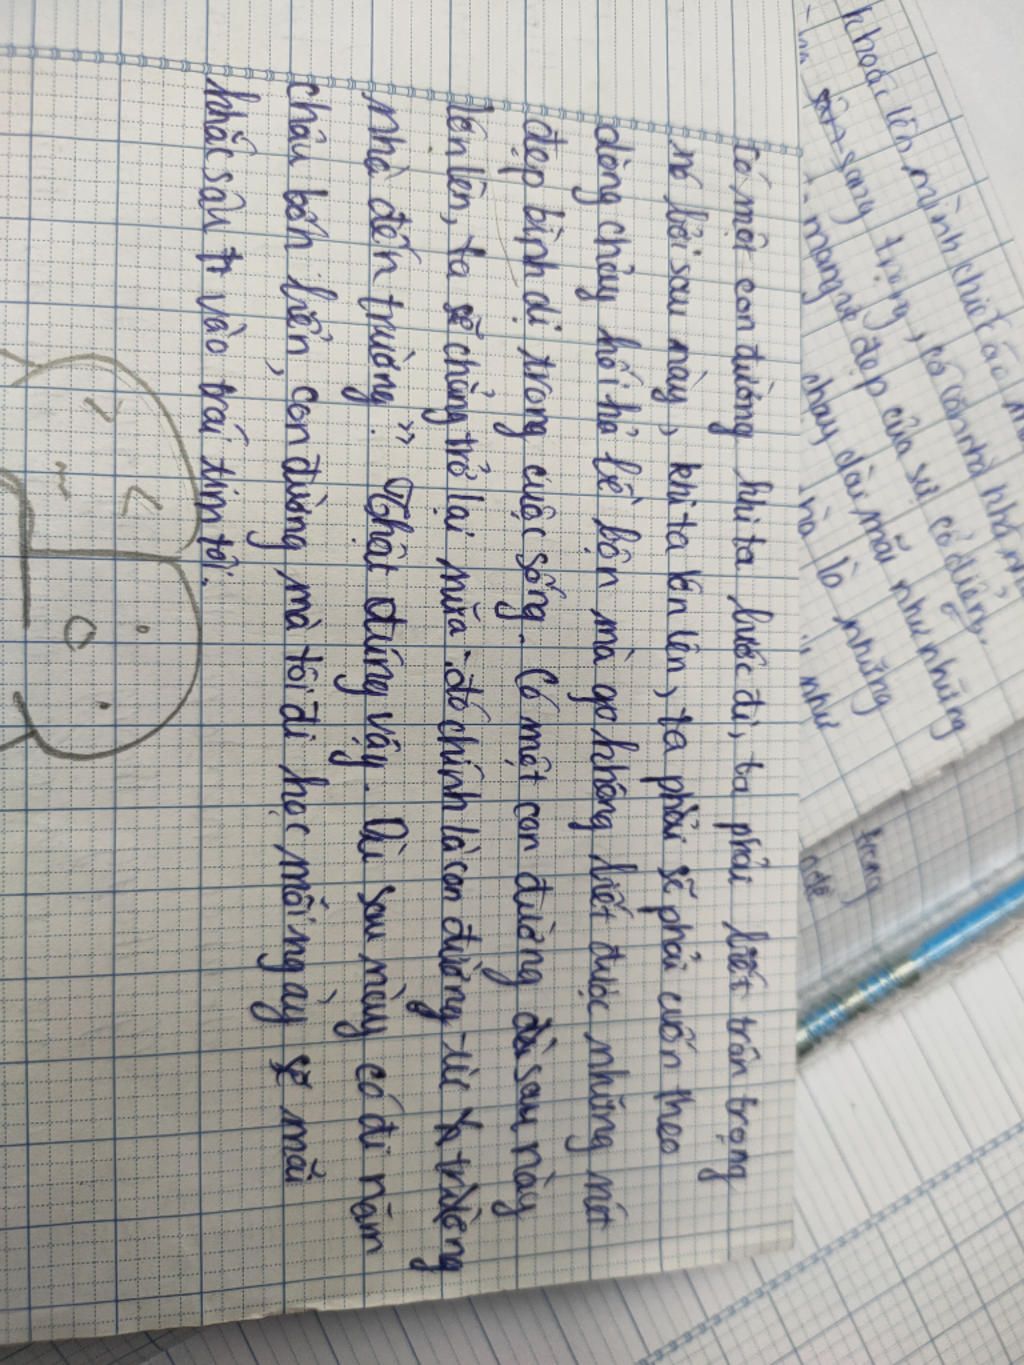 Có một con đường khi ta bước đi, ta phải biết trân trọng
nó bởi sau này, khi ta lớn lên, ta phải sẽ phải cuốn theo
dòng chảy hối hả bề bộn mà go không biết được những nét
đẹp bình dị trong cuộc sống. Có một con đường dù sau này
lớn lên, ta sẽ chẳng trở lại nữa - đó chính là con đường từ
nhà đến trường." Thật đúng vậy. Dù sau này có đi năm
châu bốn biển, con đường mà tôi đi học mỗi ngày sẽ mãi
khắc sâu tr vào trái tim tôi.
khoác lên mình chiếc áo
sang trọng, có căn nhà nhỏ
mang vẻ đẹp của sự cổ điển.
chạy dài mãi như những
là những
như
trong